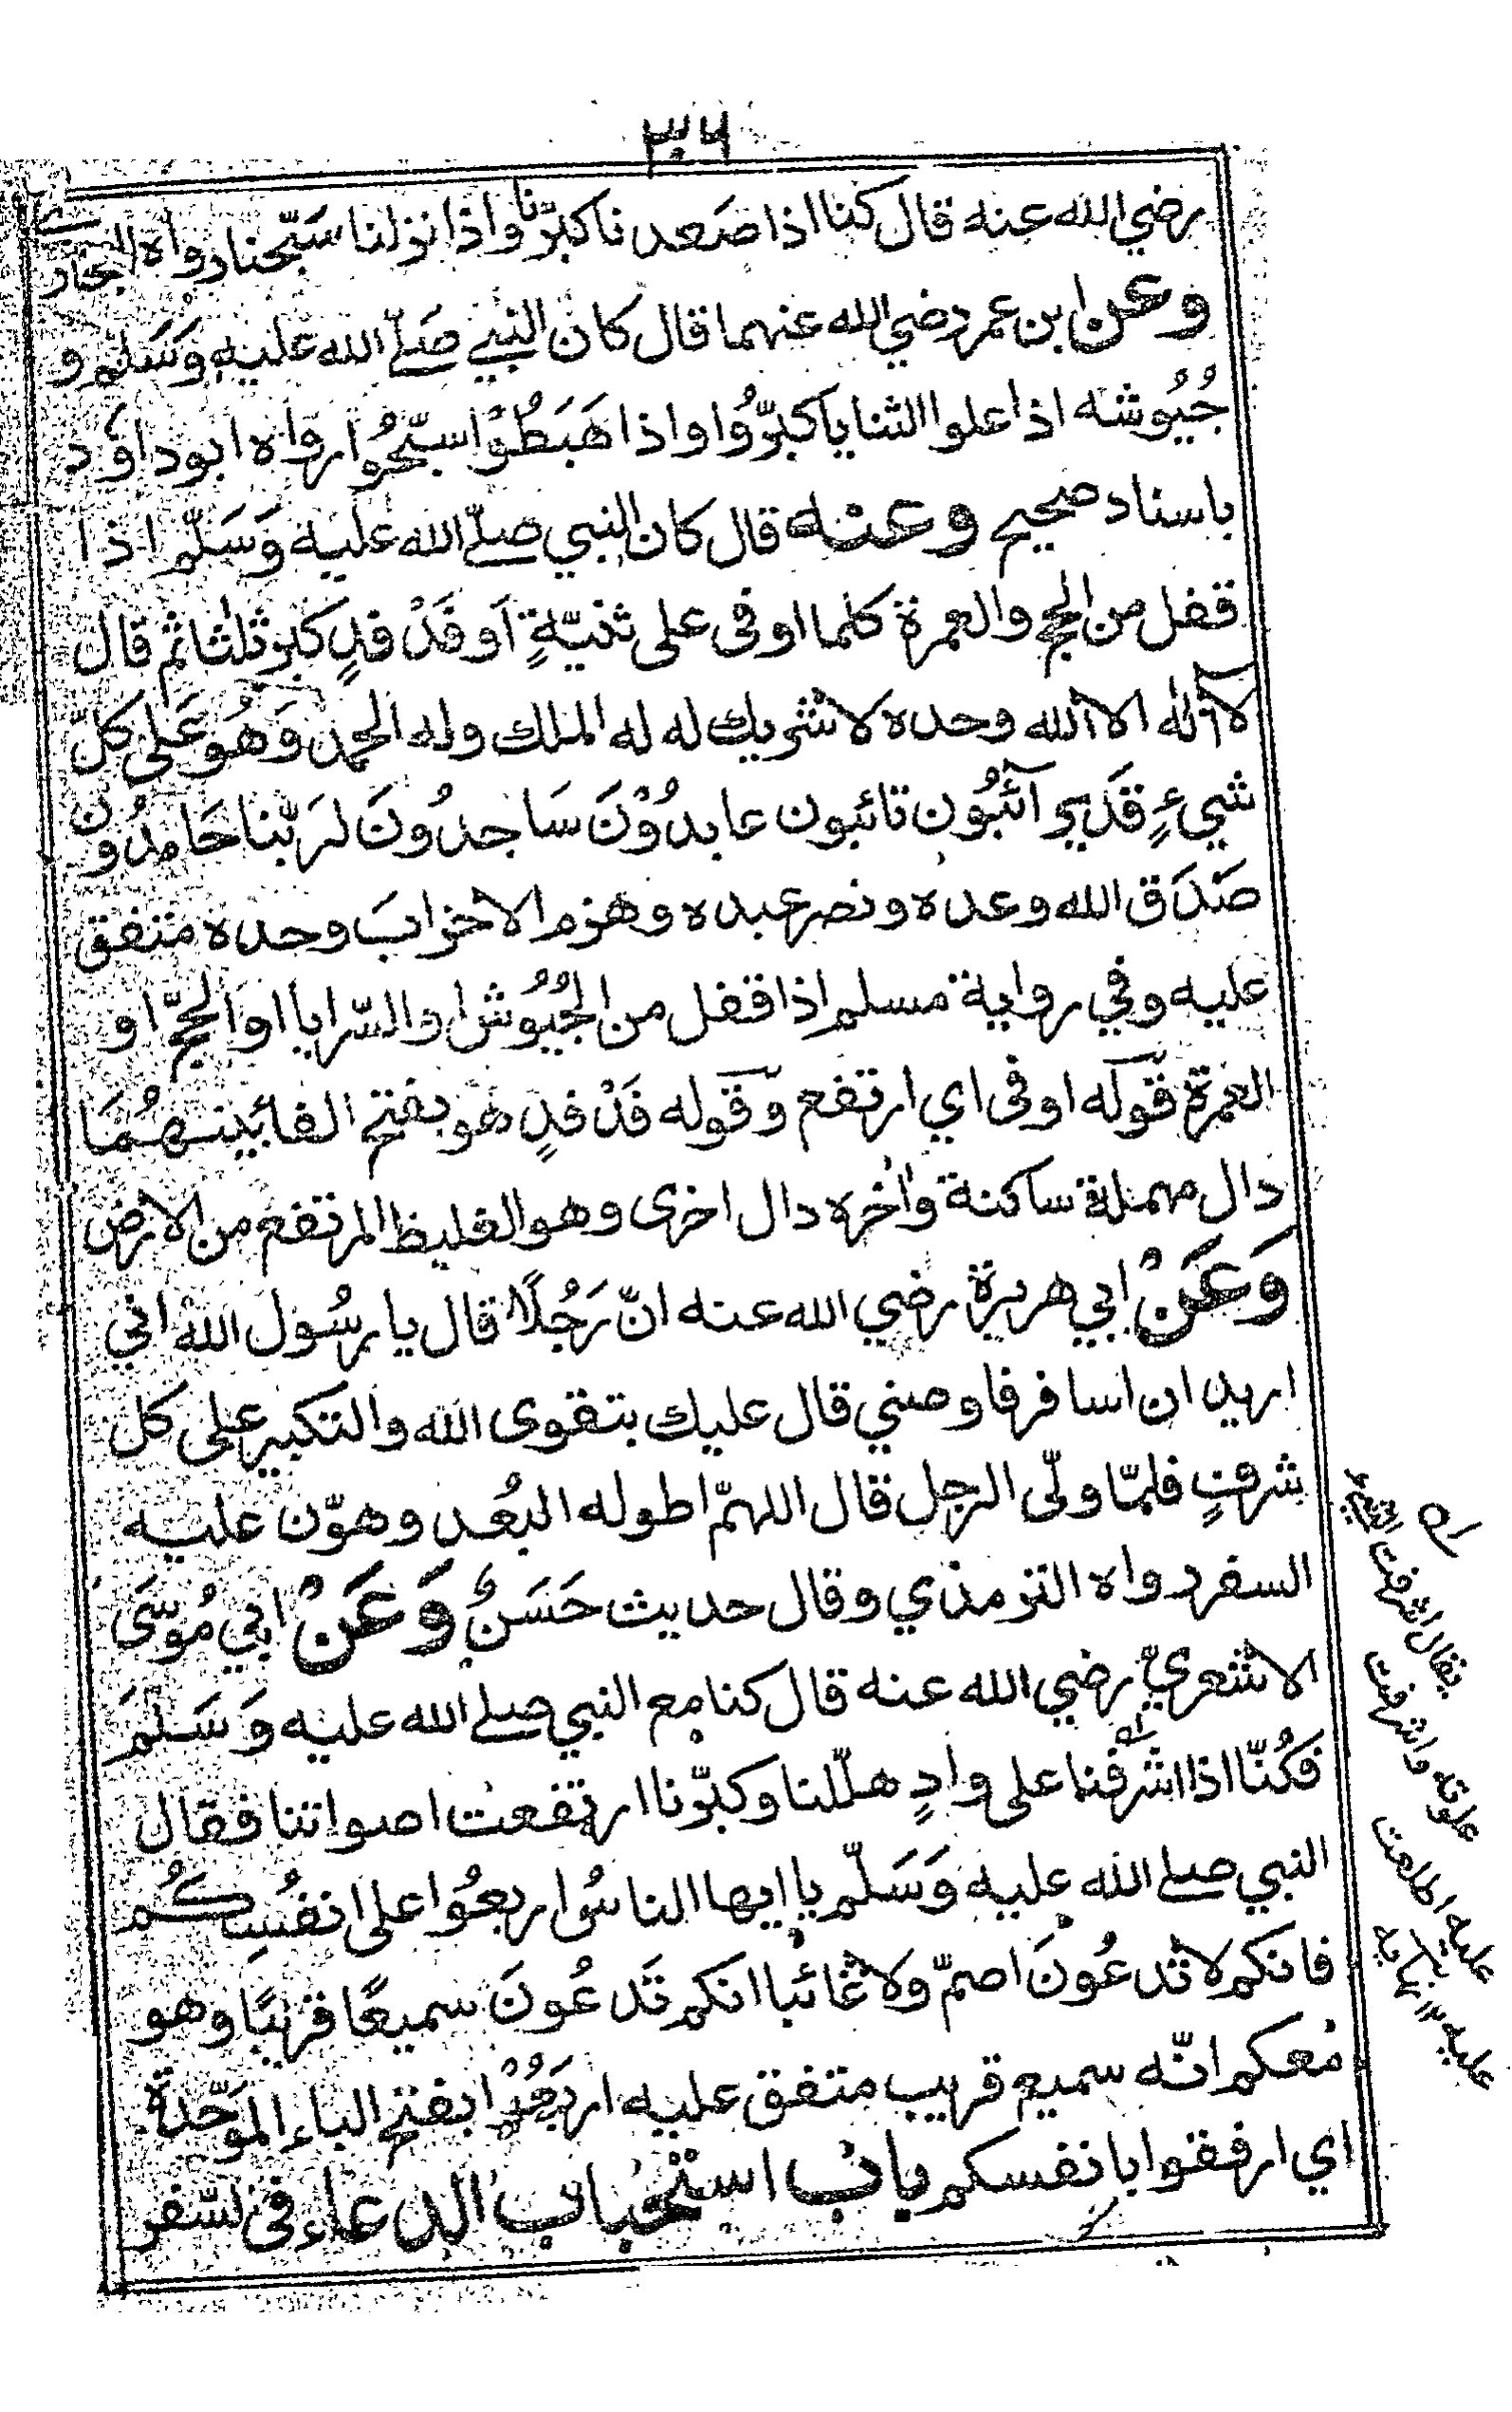 ٣٠٦
رضي الله عنه قال كنا اذا صَعدنا كبّرنا واذا نزلنا سَبّحنا رواه البخاري
وعن ابن عمر رضي الله عنهما قال كان النبي صَلّے الله عليه وَسَلّم و
جُيُوشه اذا علوا الثنايا كبّرُوا واذا هَبَطُوْا سبّحُوا رواه ابو داوٗد
باسناد صحيح وعنه قال كان النبي صلّے الله عليه وَسَلّم اذا
قفل من الحج والعمرة كلما اوفى على ثنيّةٍ اَو فَدْفدٍ كبّر ثلٰثا ثم قال
لآ اله الا الله وحده لا شريك له له الملك وله الحمد وَهُو عَلى كلّ
شيءٍ قَدير آئبُون تائبون عابدُوْنَ سَاجدُونَ لرَبّنا حَامدُون
صَدَق الله وعده ونصر عبده وهزم الاحزابَ وحده متفق
عليه وفي رواية مسلم اذا قفل من الجُيُوش او السّرايا او الحجّ او
العمرة قوله اوفى اي ارتفع وقوله فَدْفدٍ هو بفتح الفائين بينهُمَا
دال مهملة ساكنة واٰخره دال اخرى وهو الغليظ المرتفع من الارض
وَعَنْ ابي هريرة رضي الله عنه انّ رَجُلًا قال يا رسُول الله اني
اريد ان اسافر فاوصني قال عليك بتقوى الله والتكبير على كل
شرفٍ فلمّا ولّى الرجل قال اللهمّ اطو له البُعد وهوّن عليه
السفر رواه الترمذي وقال حديث حَسَنٌ وَعَنْ ابي مُوسَى
الاشعري رضي الله عنه قال كنا مع النبي صلے الله عليه وَسَلمَ
فكُنّا اذا اشرفنا على وادٍ هلّلنا وكبّرنا ارتفعت اصواتنا فقال
النبي صلے الله عليه وَسَلّم يا ايها الناسُ اربعُوا على انفُسِكُم
فانكم لا تدعُونَ اصمّ ولا غائبا انكم تَدعُونَ سميعًا قريبًا وهو
معكم انّه سميع قريب متفق عليه اربَعُوْا بفتح الباء الموَحّدة
اي ارفقوا بانفسكم باب استحباب الدعاء فى السّفر
يقال اشرفت
علوته واشرفت
عليه اطلعت
عليه